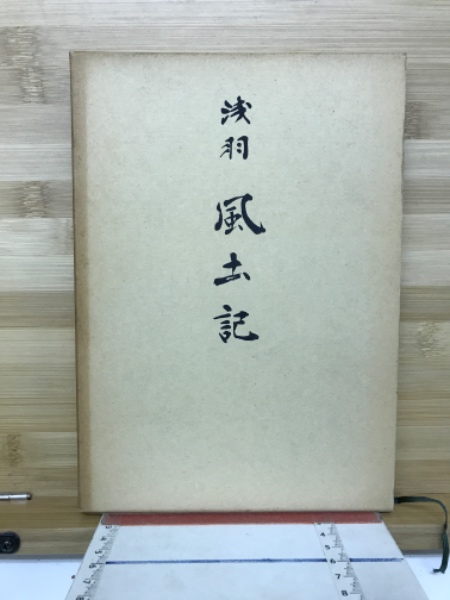 浅羽 風土記